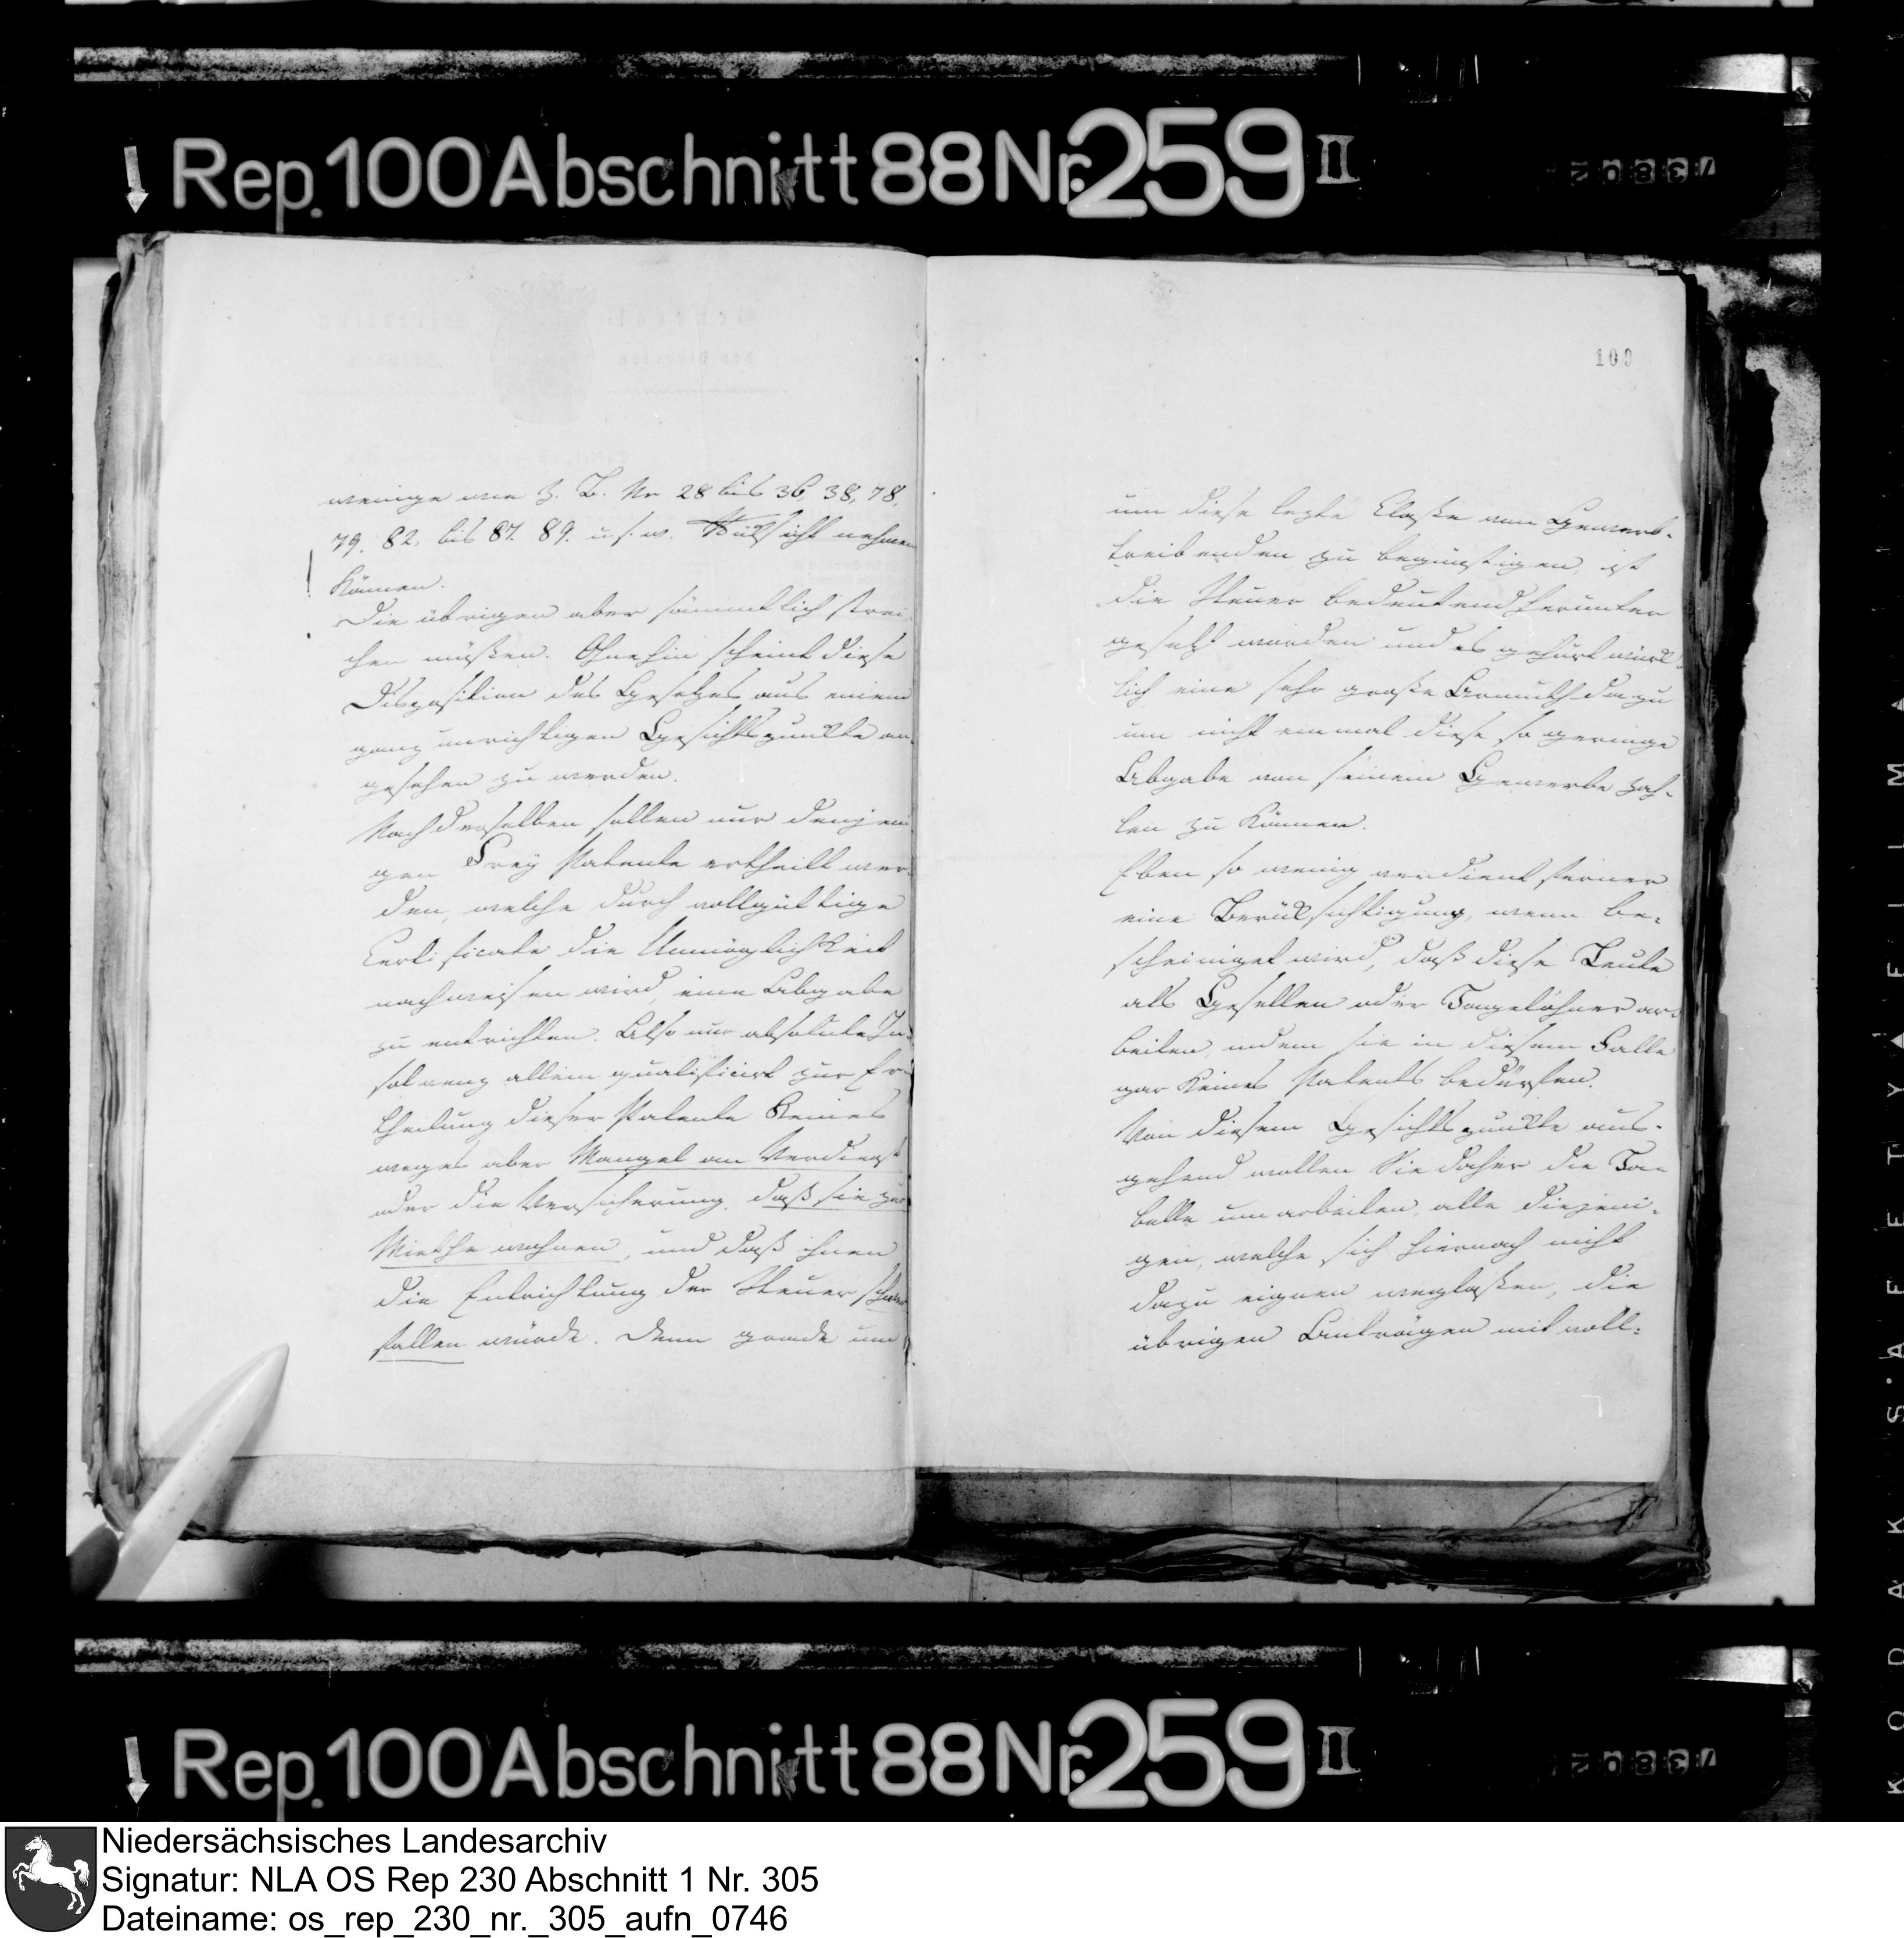 Rep. 100 Abschnitt 88 Nr. 259 II
109
wenige wie z. B. Nr 28 bis 36, 38, 78,
79. 82. bis 87. 89. u. s. w. Rücksicht nehmen
können.
Die übrigen aber sämmtlich strei-
chen müßen. Ohnehin scheint diese
Disposition des Gesetzes aus einem
ganz unrichtigen Gesichtspunkte an-
gesehen zu werden.
Nach derselben sollen nur denjeni
gen Frey Patente ertheilt wer-
den, welche durch vollgültige
Certificate die Unmöglichkeit
nachweisen wird, eine Abgabe
zu entrichten. Also nur absolute In-
solvenz allein qualificirt zur Er-
theilung dieser Patente keines
weges aber Mangel an Verdienst
oder die Versicherung, daß sie zur
Miethe wohnen, und daß ihnen
die Entrichtung der Steuer schwer
fallen würde. Denn grade um
um diese letzte Claße von Gewerb-
treibenden zu begünstigen, ist
die Steuer bedeutend herunter
gesetzt worden und es gehört wirk-
lich eine sehr große Armuth dazu
um nicht einmal diese so geringe
Abgabe von seinem Gewerbe zah-
len zu können.
Eben so wenig verdient ferner
eine Berücksichtigung, wenn be-
scheiniget wird, daß diese Leute
als Gesellen oder Tagelöhner ar-
beiten, indem sie in diesem Falle
gar keines Patents bedürfen.
Von diesem Gesichtspunkte aus-
gehend wollen Sie daher die Ta-
belle umarbeiten, alle diejeni-
gen, welche sich hiernach nicht
dazu eignen weglaßen, die
übrigen Anträgen mit voll-
Rep. 100 Abschnitt 88 Nr. 259 II
KODAK SAFETY FILM
Niedersächsisches Landesarchiv
Signatur: NLA OS Rep 230 Abschnitt 1 Nr. 305
Dateiname: os_rep_230_nr._305_aufn_0746